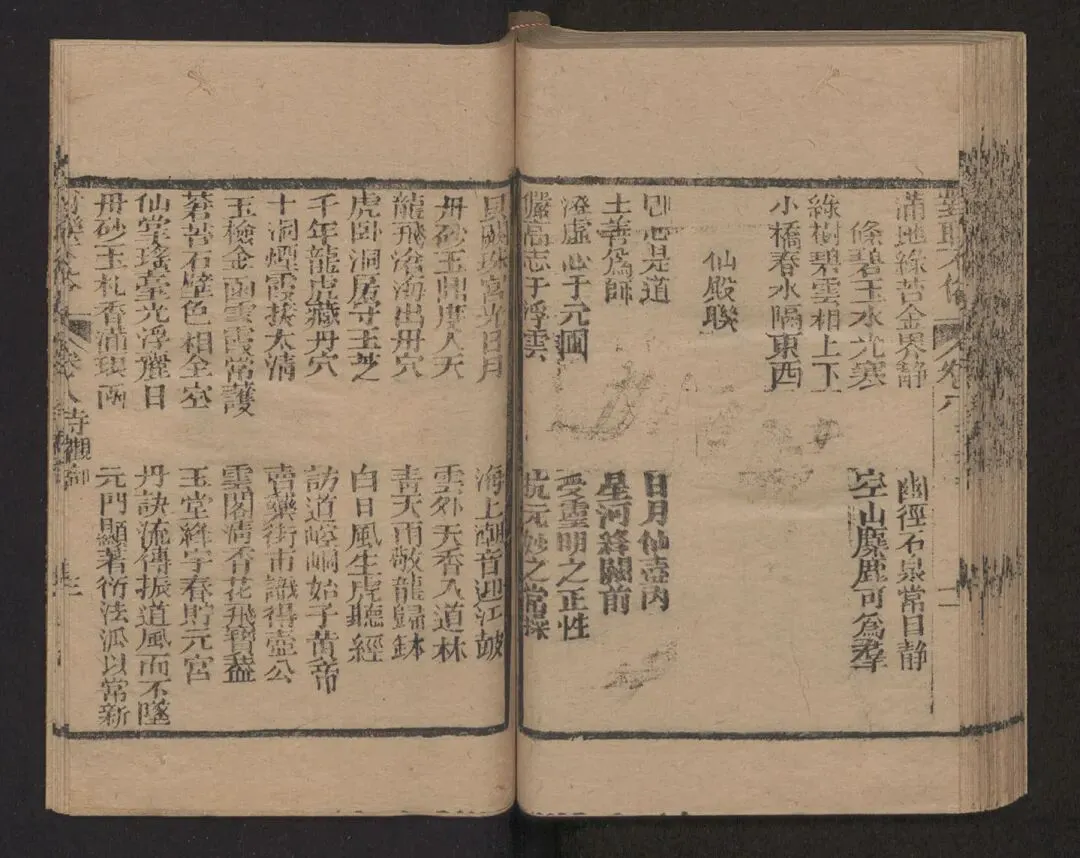 滿地綠苔金界静
幽徑石泉常日静
條碧玉水光寒
空山麋鹿可為羣
綠樹碧雲相上下
小橋春水隔東西
仙殿聯
心是道
日月仙壺内
主善為師
星河絳闕前
澄虛心于元圃
受靈明之正性
高志于浮雲
元妙之常採
貝闕珠宫光日月
海上潮音迎江皷
丹砂玉鼎度人天
雲外天香入道林
龍飛滄海出丹穴
青天雨散龍歸鉢
虎卧洞房守玉芝
白日風生虎聽經
千年龍虎藏丹穴
訪道崆峒始子黄帝
十洞煙霞扶太清
賣藥街市識得壺公
玉檢金函雲霞常護
雲閣清香花飛寳盖
蒼苔石壁色相全空
玉堂絳字春貯元宮
仙堂瑤臺光浮麗日
丹訣流傳振道風而不墜
丹砂玉札香滿琅函
元門顯著衍法派以常新
卷八
寺觀